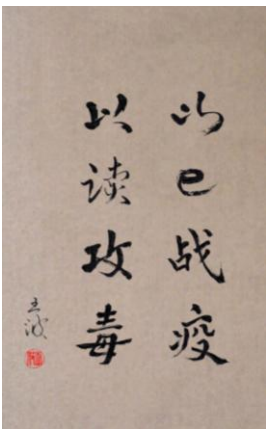 以已战疫
以读攻毒